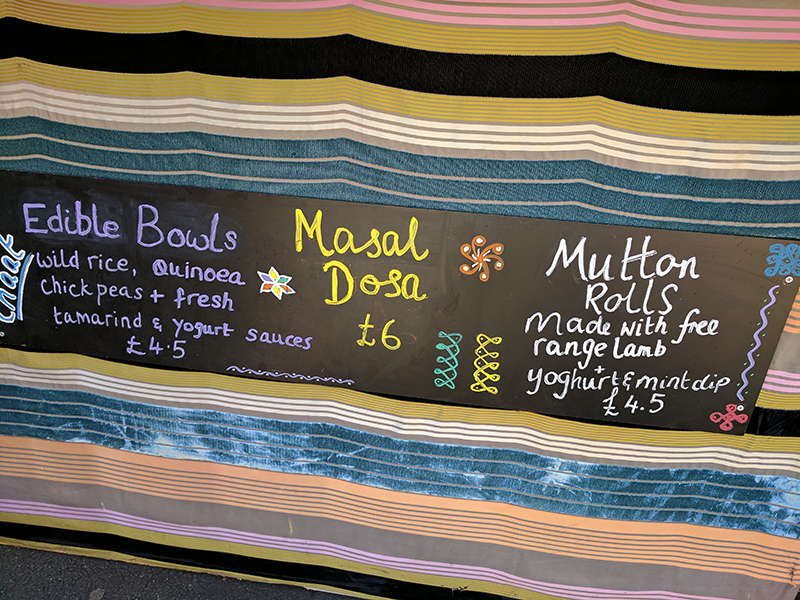 chaat
Edible Bowls
wild rice, Quinoea
chick peas + fresh
tamarind & yogurt sauces
£4.5
Masal
Dosa
£6
Mutton
Rolls
Made with free
range lamb
+
yoghurt & mint dip
£4.5